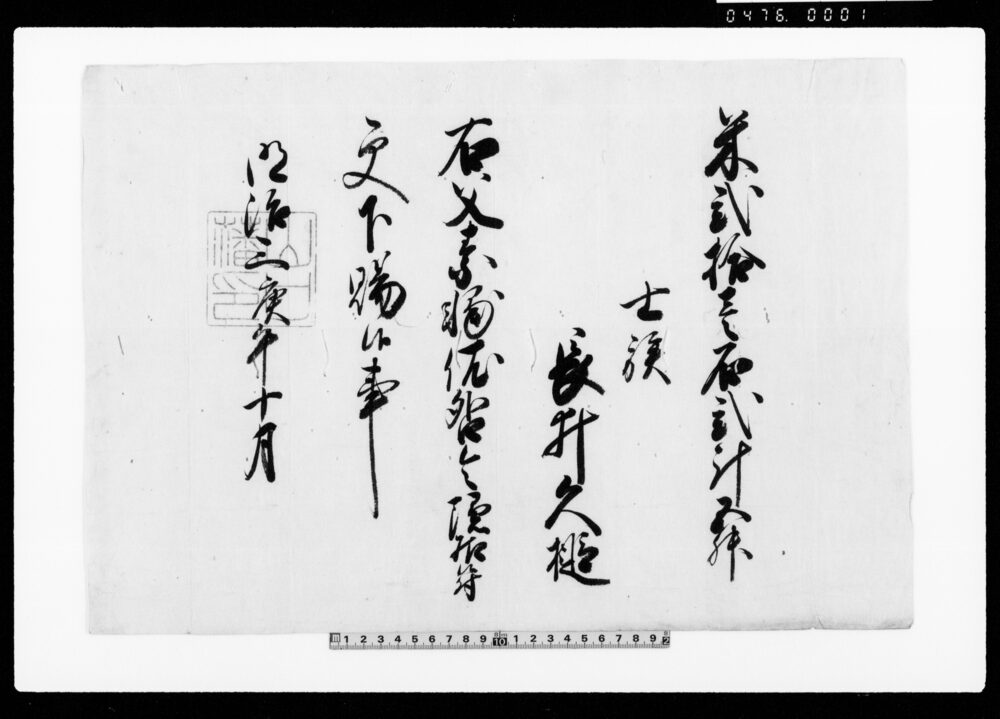 0476. 0001
米弐拾壱石弐斗五升
士族
長井久槌
右父素彌依 令隠
更下賜候事
明治三庚午十月
藩印
1 2 3 4 5 6 7 8 9 10 1 2 3 4 5 6 7 8 9